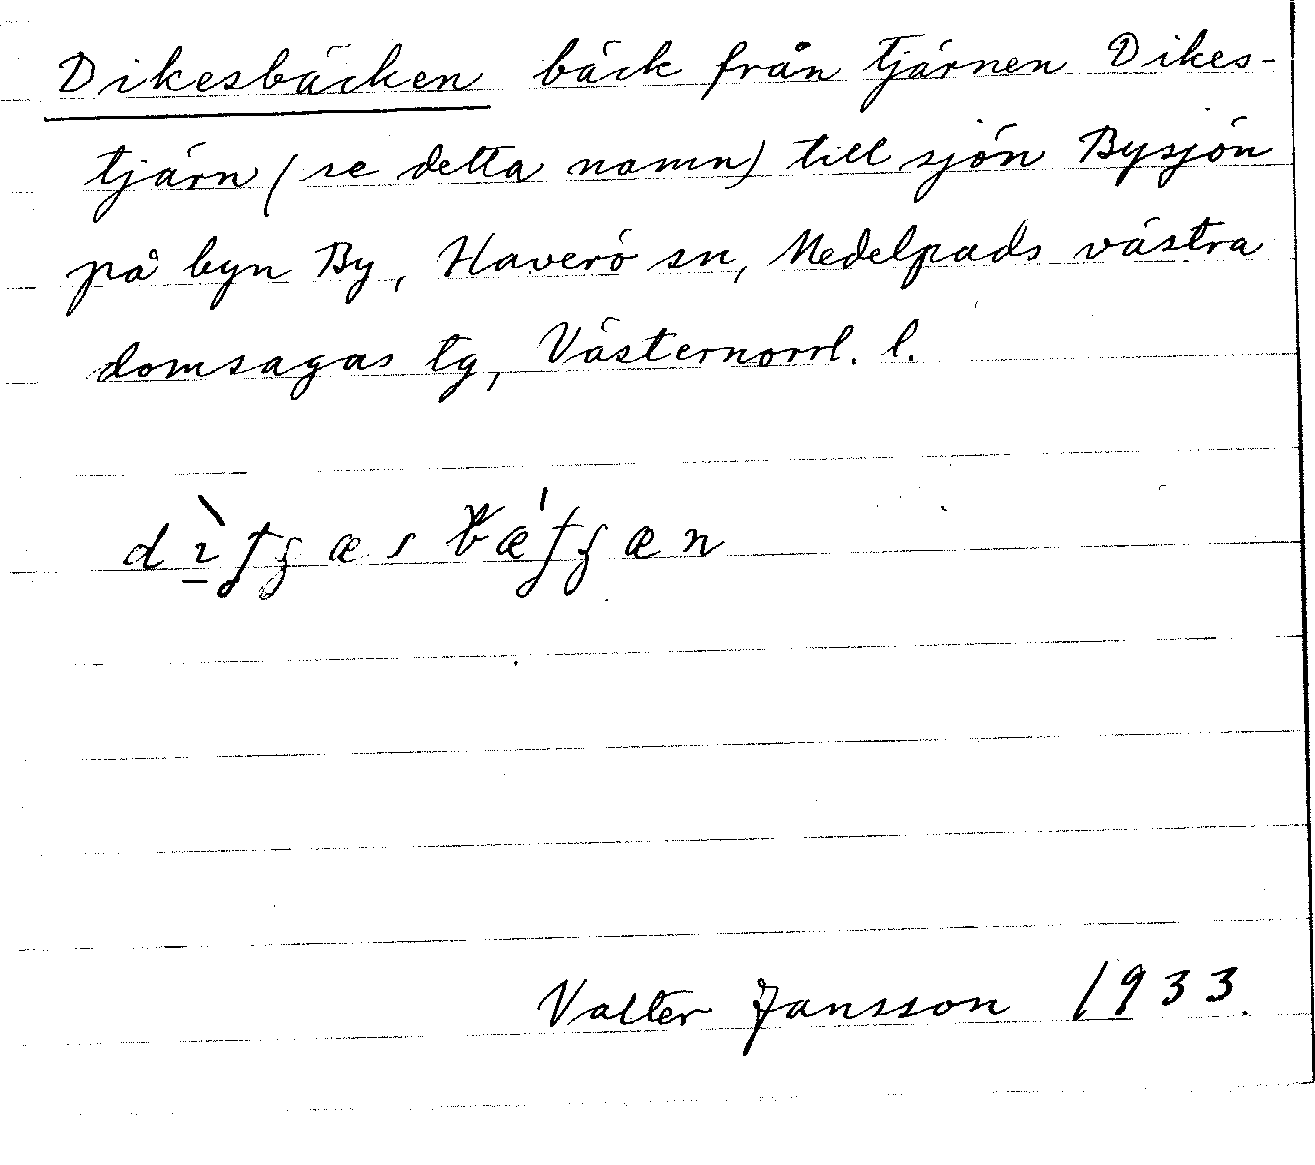 Dikesbäcken bäck från tjärnen Dikes-
tjärn (se detta namn) till sjön Bysjön
på byn By, Haverö sn, Medelpads västra
domsagas tg, Västernorrl. l.
Valter Jansson 1933.